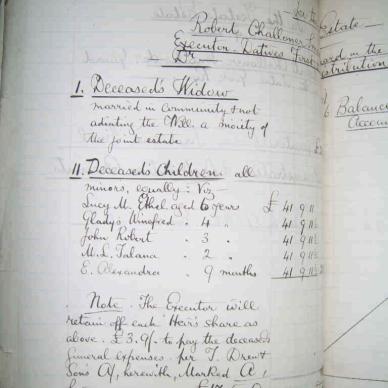 for the Estate
Robert Challoner
Executor Datives First based on the
Dr distribution
I. Deceased's Widow
married in Community & not
adiating the Will, a moiety of
the joint estate
Balance
Account
II. Deceased's Children: all
minors, equally: Viz
Lucy M. Ethel aged 6 years £ 41 9 11½
Gladys Winifred " 4 " 41 9 11½
John Robert " 3 " 41 9 11½
M. L. Talana " 2 " 41 9 11½
E. Alexandra " 9 months 41 9 11½
Note: The Executor will
retain off each Heir's share as
above £3.9/- to pay the deceased's
funeral expenses per T. Drew &
Sons A/c, herewith, Marked A